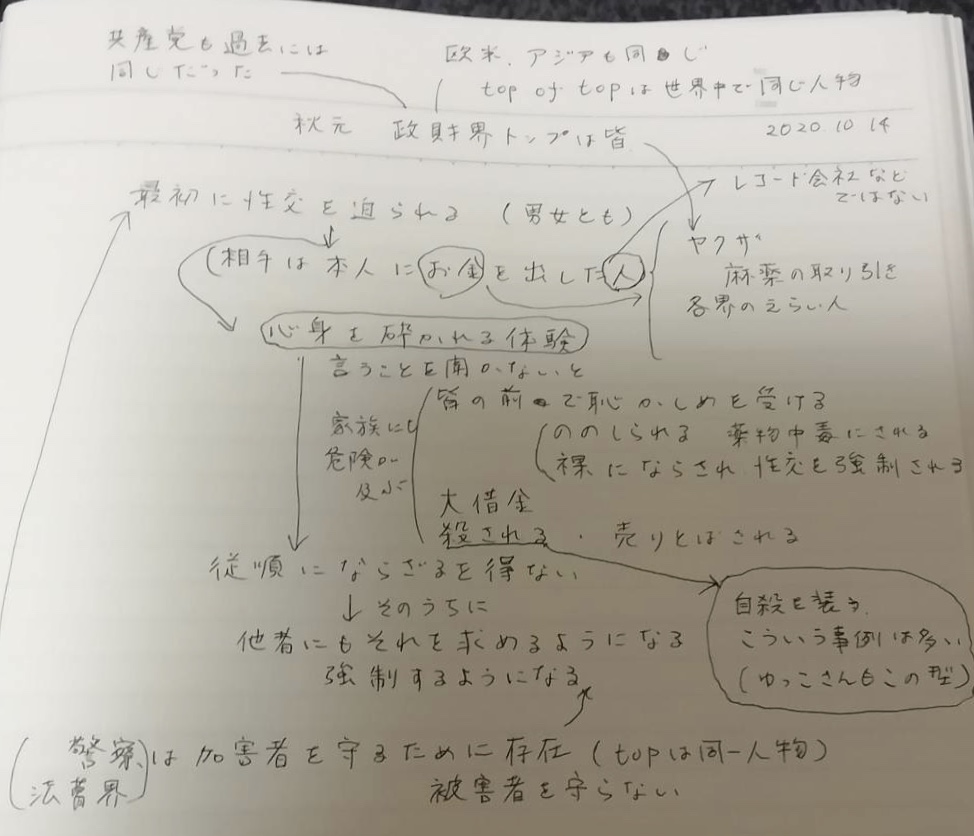 共産党も過去には
同じだった
欧米、アジアも同じ
top of topは世界中で同じ人物
2020.10 14
秋元 政財界トップは皆
レコード会社など
ではない
最初に性交を迫られる (男女とも)
ヤクザ
麻薬の取り引き
各界のえらい人
(相手は本人にお金を出した人
心身を砕かれる体験
言うことを聞かないと
家族にも
危険が
及ぶ
皆の前で恥かしめを受ける
ののしられる 薬物中毒にされる
裸にならされ 性交を強制される
大借金
殺される ・ 売りとばされる
自殺を装う
こういう事例は多い
(ゆっこさんもこの型)
従順にならざるを得ない
↓そのうちに
他者にもそれを求めるようになる
強制するようになる
(警察、法曹界)は加害者を守るために存在 (topは同一人物)
被害者を守らない